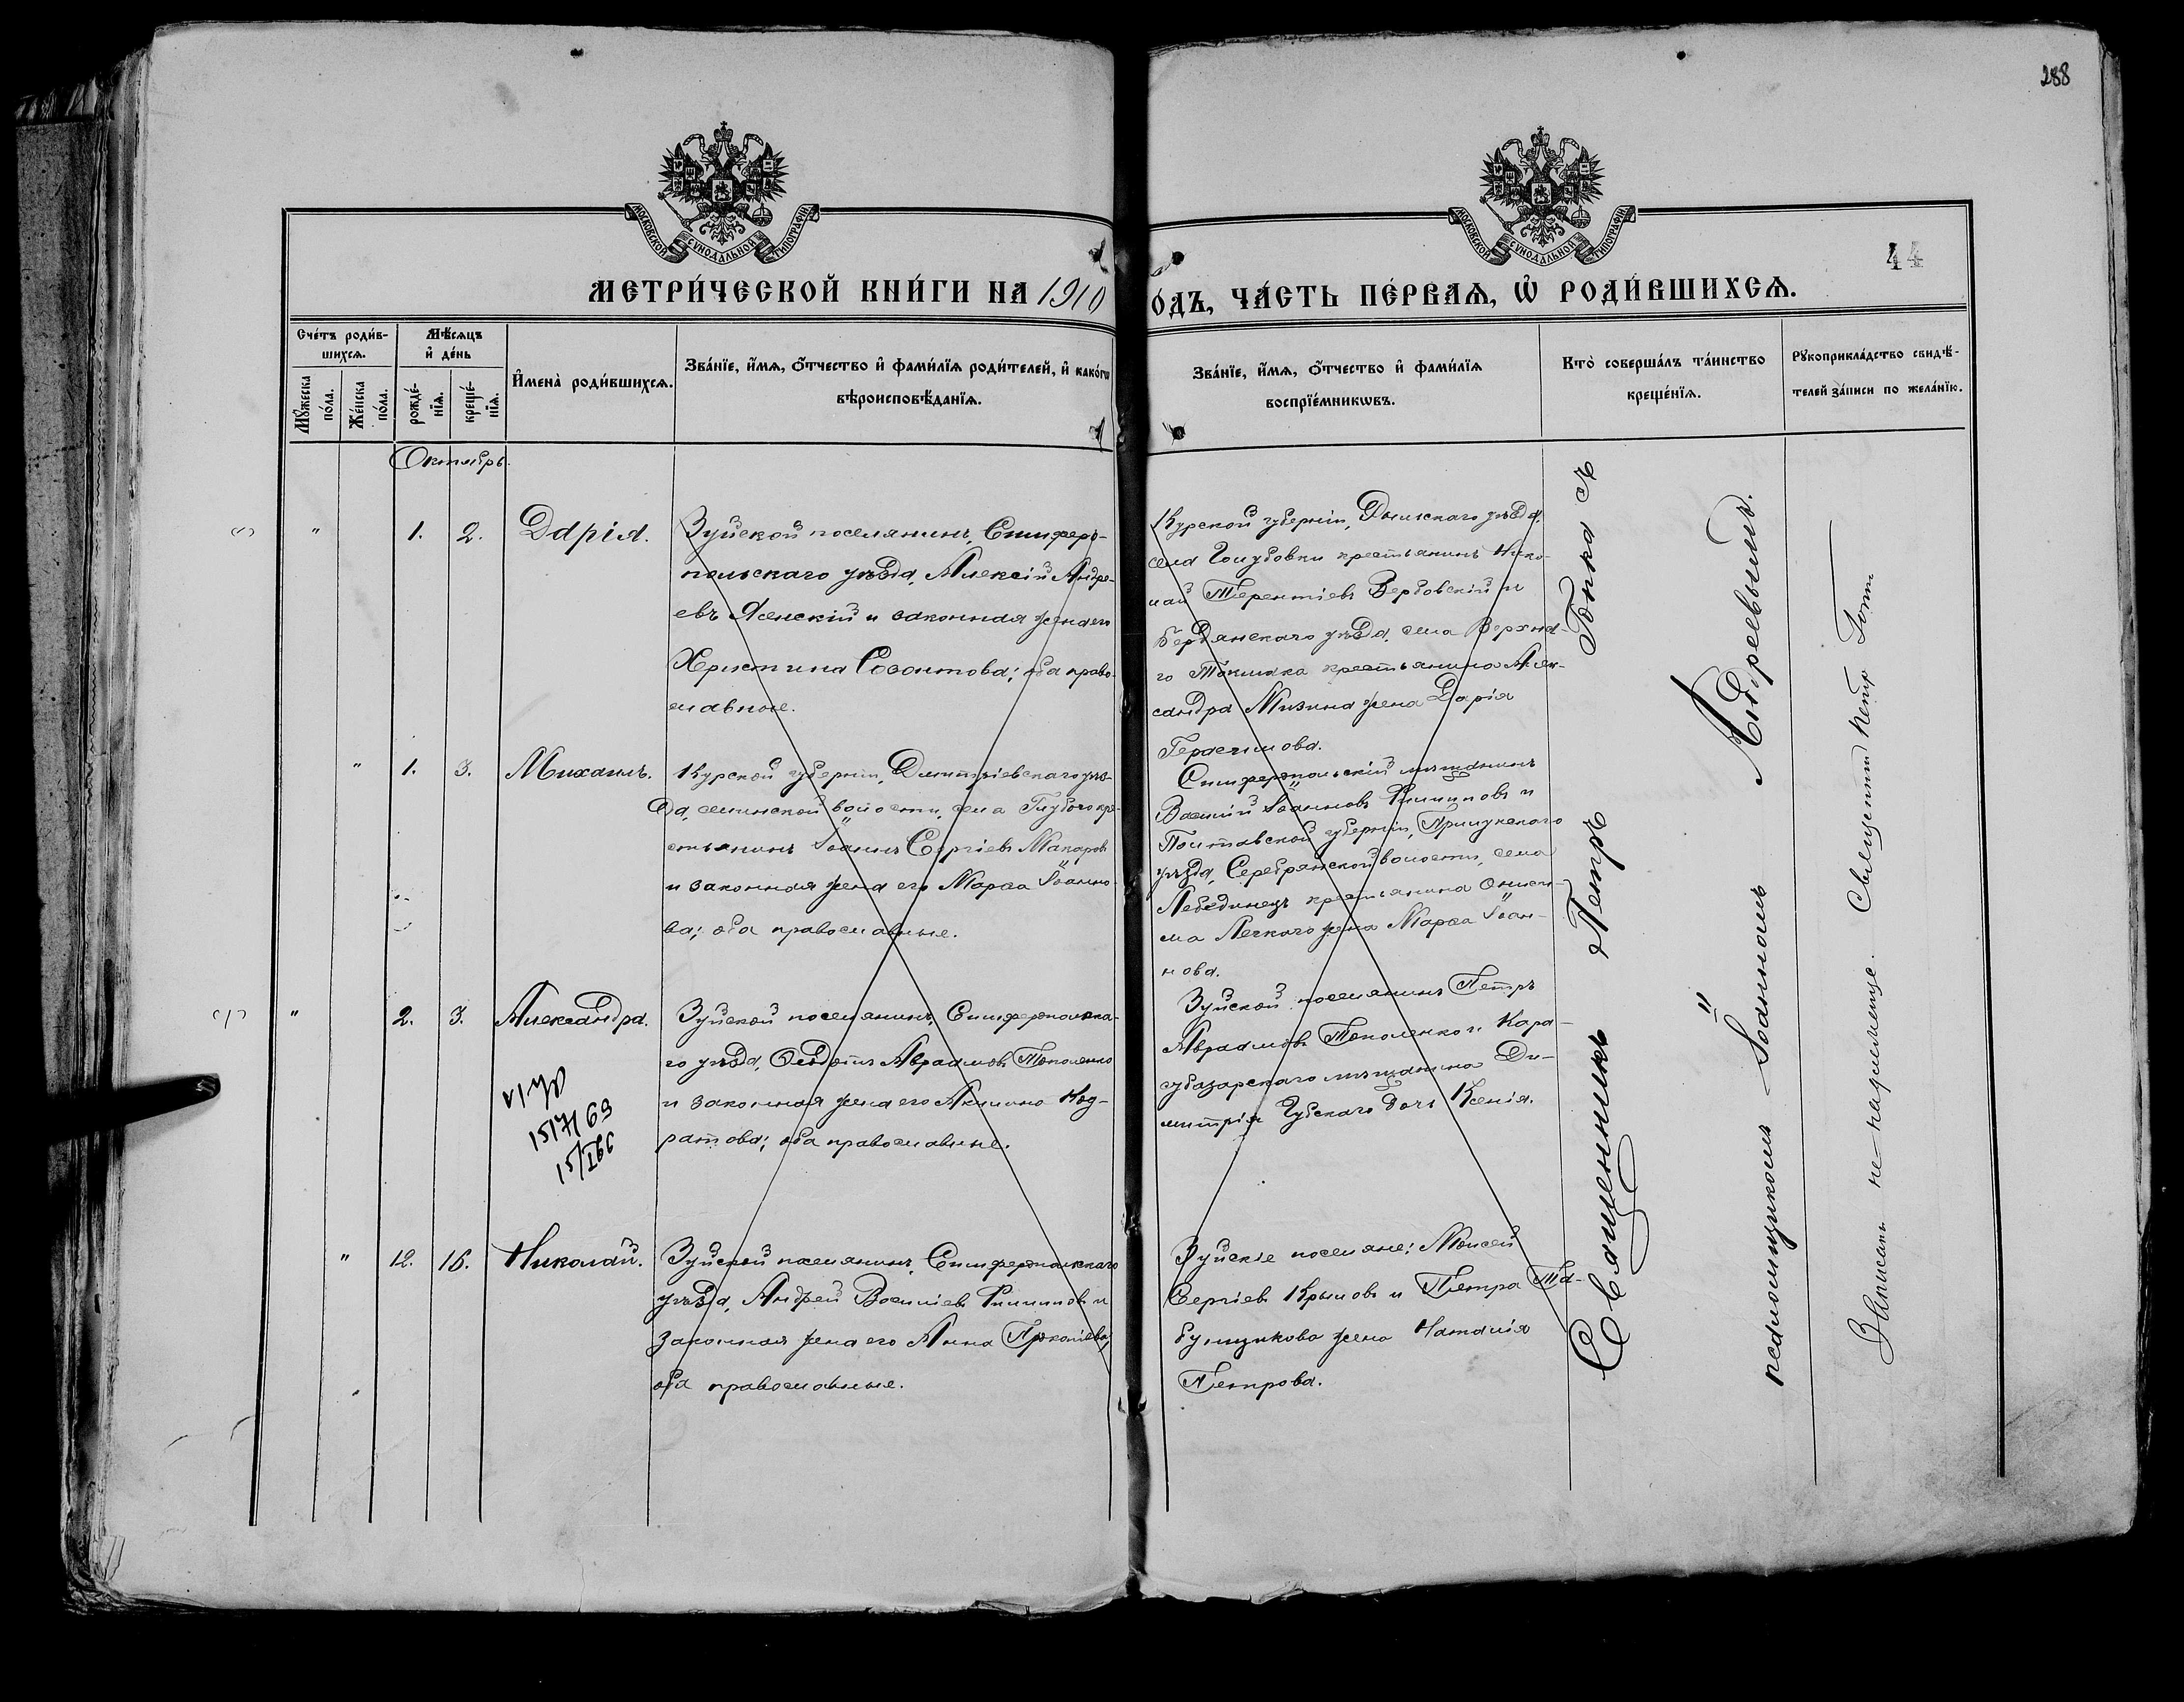 288
МОСКОВСКОЙ СѴНОДАЛЬНОЙ ТИПОГРАФІИ.
МОСКОВСКОЙ СѴНОДАЛЬНОЙ ТИПОГРАФІИ.
44
МЕТРИ́ЧЕСКОЙ КНИ́ГИ НА 1910
О́ДЪ, ЧА́СТЬ ПЕ́РВАѦ, Ѡ҆ РОДИ́ВШИХСѦ.
Сче́тъ роди́в-
шихсѧ.
Мѣ́сѧцъ
и҆ де́нь
Мꙋ́жеска
по́ла.
Же́нска
по́ла.
рожде́-
нїѧ.
креще́-
нїѧ.
И҆мена̀ роди́вшихсѧ.
Зва́нїе, и҆́мѧ, ѻ҆́тчество и҆ фами́лїѧ роди́телей, и҆ како́гѡ
вѣроисповѣ́данїѧ.
Зва́нїе, и҆́мѧ, ѻ҆́тчество и҆ фами́лїѧ
воспрїе́мникѡвъ.
Кто̀ соверша́лъ та́инство
креще́нїѧ.
Рꙋкоприкла́дство свидѣ́-
телей за́писи по жела́нїю.
Октябрь.
" 1. 2. Дарія.
Зуйской поселянинъ, Симферо-
польскаго уѣзда, Алексій Андре-
евъ Ясенскій и законная жена его
Христина Созонтова; оба право-
славные.
Курской губерніи, уѣзда,
села Голубовки крестьянинъ Нико-
лай Терентіевъ Вербовскій и
Бердянскаго уѣзда, села Верхня-
го Токмака крестьянина Алек-
сандра Мизина жена Дарія
Герасимова.
" 1. 3. Михаилъ.
Курской губерніи, Дмитріевскаго уѣз-
да, волости, села кре-
стьянинъ Іоаннъ Сергіевъ Макаровъ
и законная жена его Марѳа Іоанно-
ва; оба православные.
Симферопольскій мѣщанинъ
Василій Іоанновъ Филиповъ и
Полтавской губерніи, Прилукскаго
уѣзда, Серебрянской волости, села
Лебединецъ крестьянина Ониси-
ма Легкаго жена Марѳа Іоан-
нова.
" 2. 3. Александра.
Зуйской поселянинъ, Симферопольска-
го уѣзда, Ѳедотъ Авраамовъ Тополенко
и законная жена его Акилина Код-
ратова; оба православные.
Зуйской поселянинъ Петръ
Авраамовъ Тополенко и Кара-
субазарскаго мѣщанина Ди-
митрія Губскаго дочь Ксенія.
" 12. 16. Николай.
Зуйской поселянинъ, Симферопольскаго
уѣзда, Андрей Василіевъ Филиповъ и
законная жена его Анна Прокопіева,
оба православные.
Зуйскіе поселяне: Моисей
Сергіевъ Крымовъ и Петра Та-
бунщикова жена Наталія
Петрова.
Священникъ Петръ съ
псаломщикомъ Іоанномъ Авдреевымъ.
Священник Петр